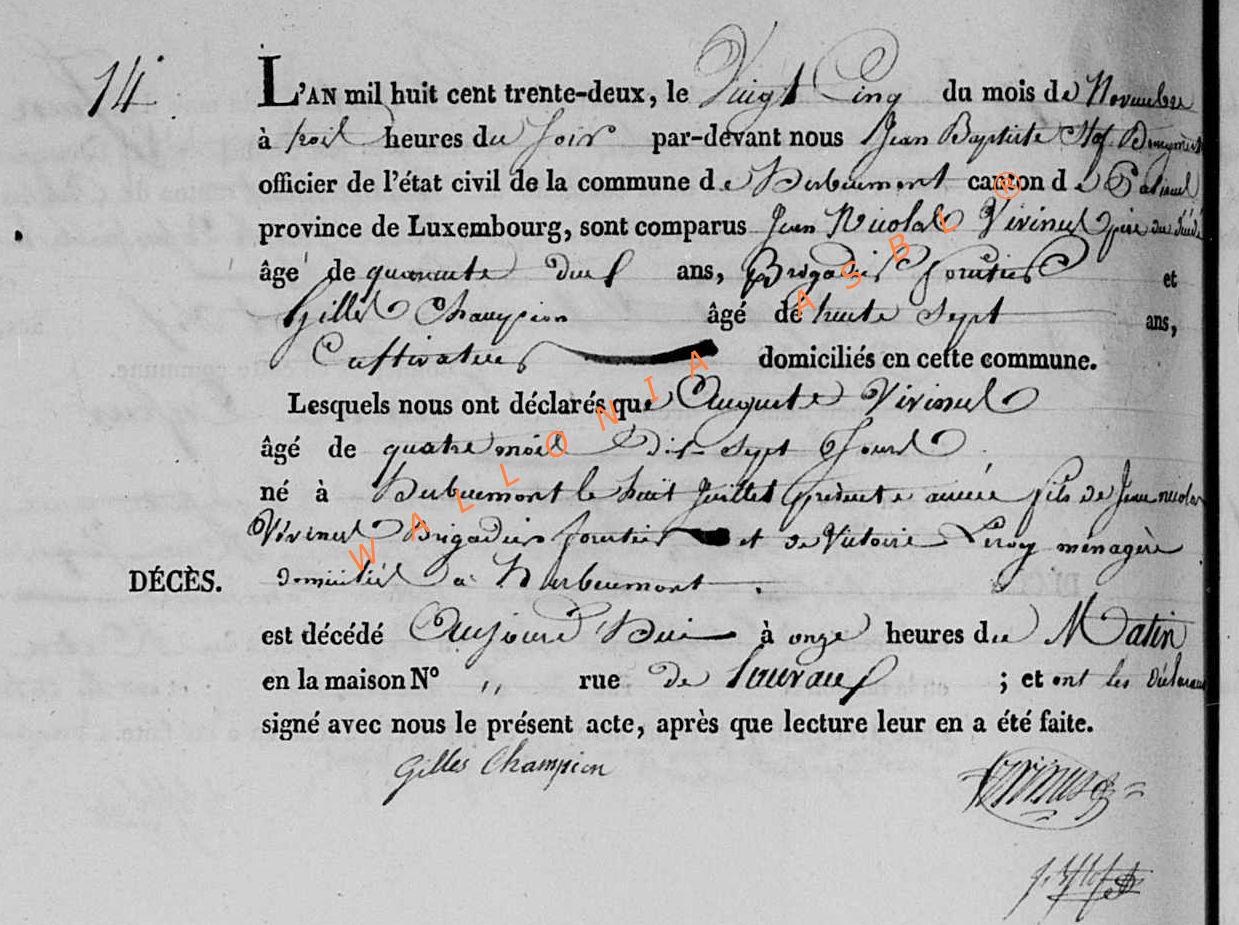 14.
L'AN mil huit cent trente-deux, le Vingt Cinq du mois de Novembre
à trois heures du Soir par-devant nous Jean Baptiste Hof
officier de l'état civil de la commune de Herbeumont canton de Paliseul
province de Luxembourg, sont comparus Jean Nicolas Virinus père du
âgé de quarante deux ans, Brigadier forestier et
Gilles Champion âgé de trente Sept ans,
Cultivateur domiciliés en cette commune.
Lesquels nous ont déclarés que Auguste Virinus
âgé de quatre mois dix Sept Jours
né à Herbeumont le huit Juillet présente année fils de Jean nicolas
Virinus Brigadier forestier et de Victoire Leroy ménagère
DÉCÈS. domiciliés à Herbeumont
est décédé Aujourd'hui à onze heures du Matin
en la maison N° ,, rue de ; et ont les
signé avec nous le présent acte, après que lecture leur en a été faite.
Gilles Champion
Virinus
WALLONIA ASBL ®